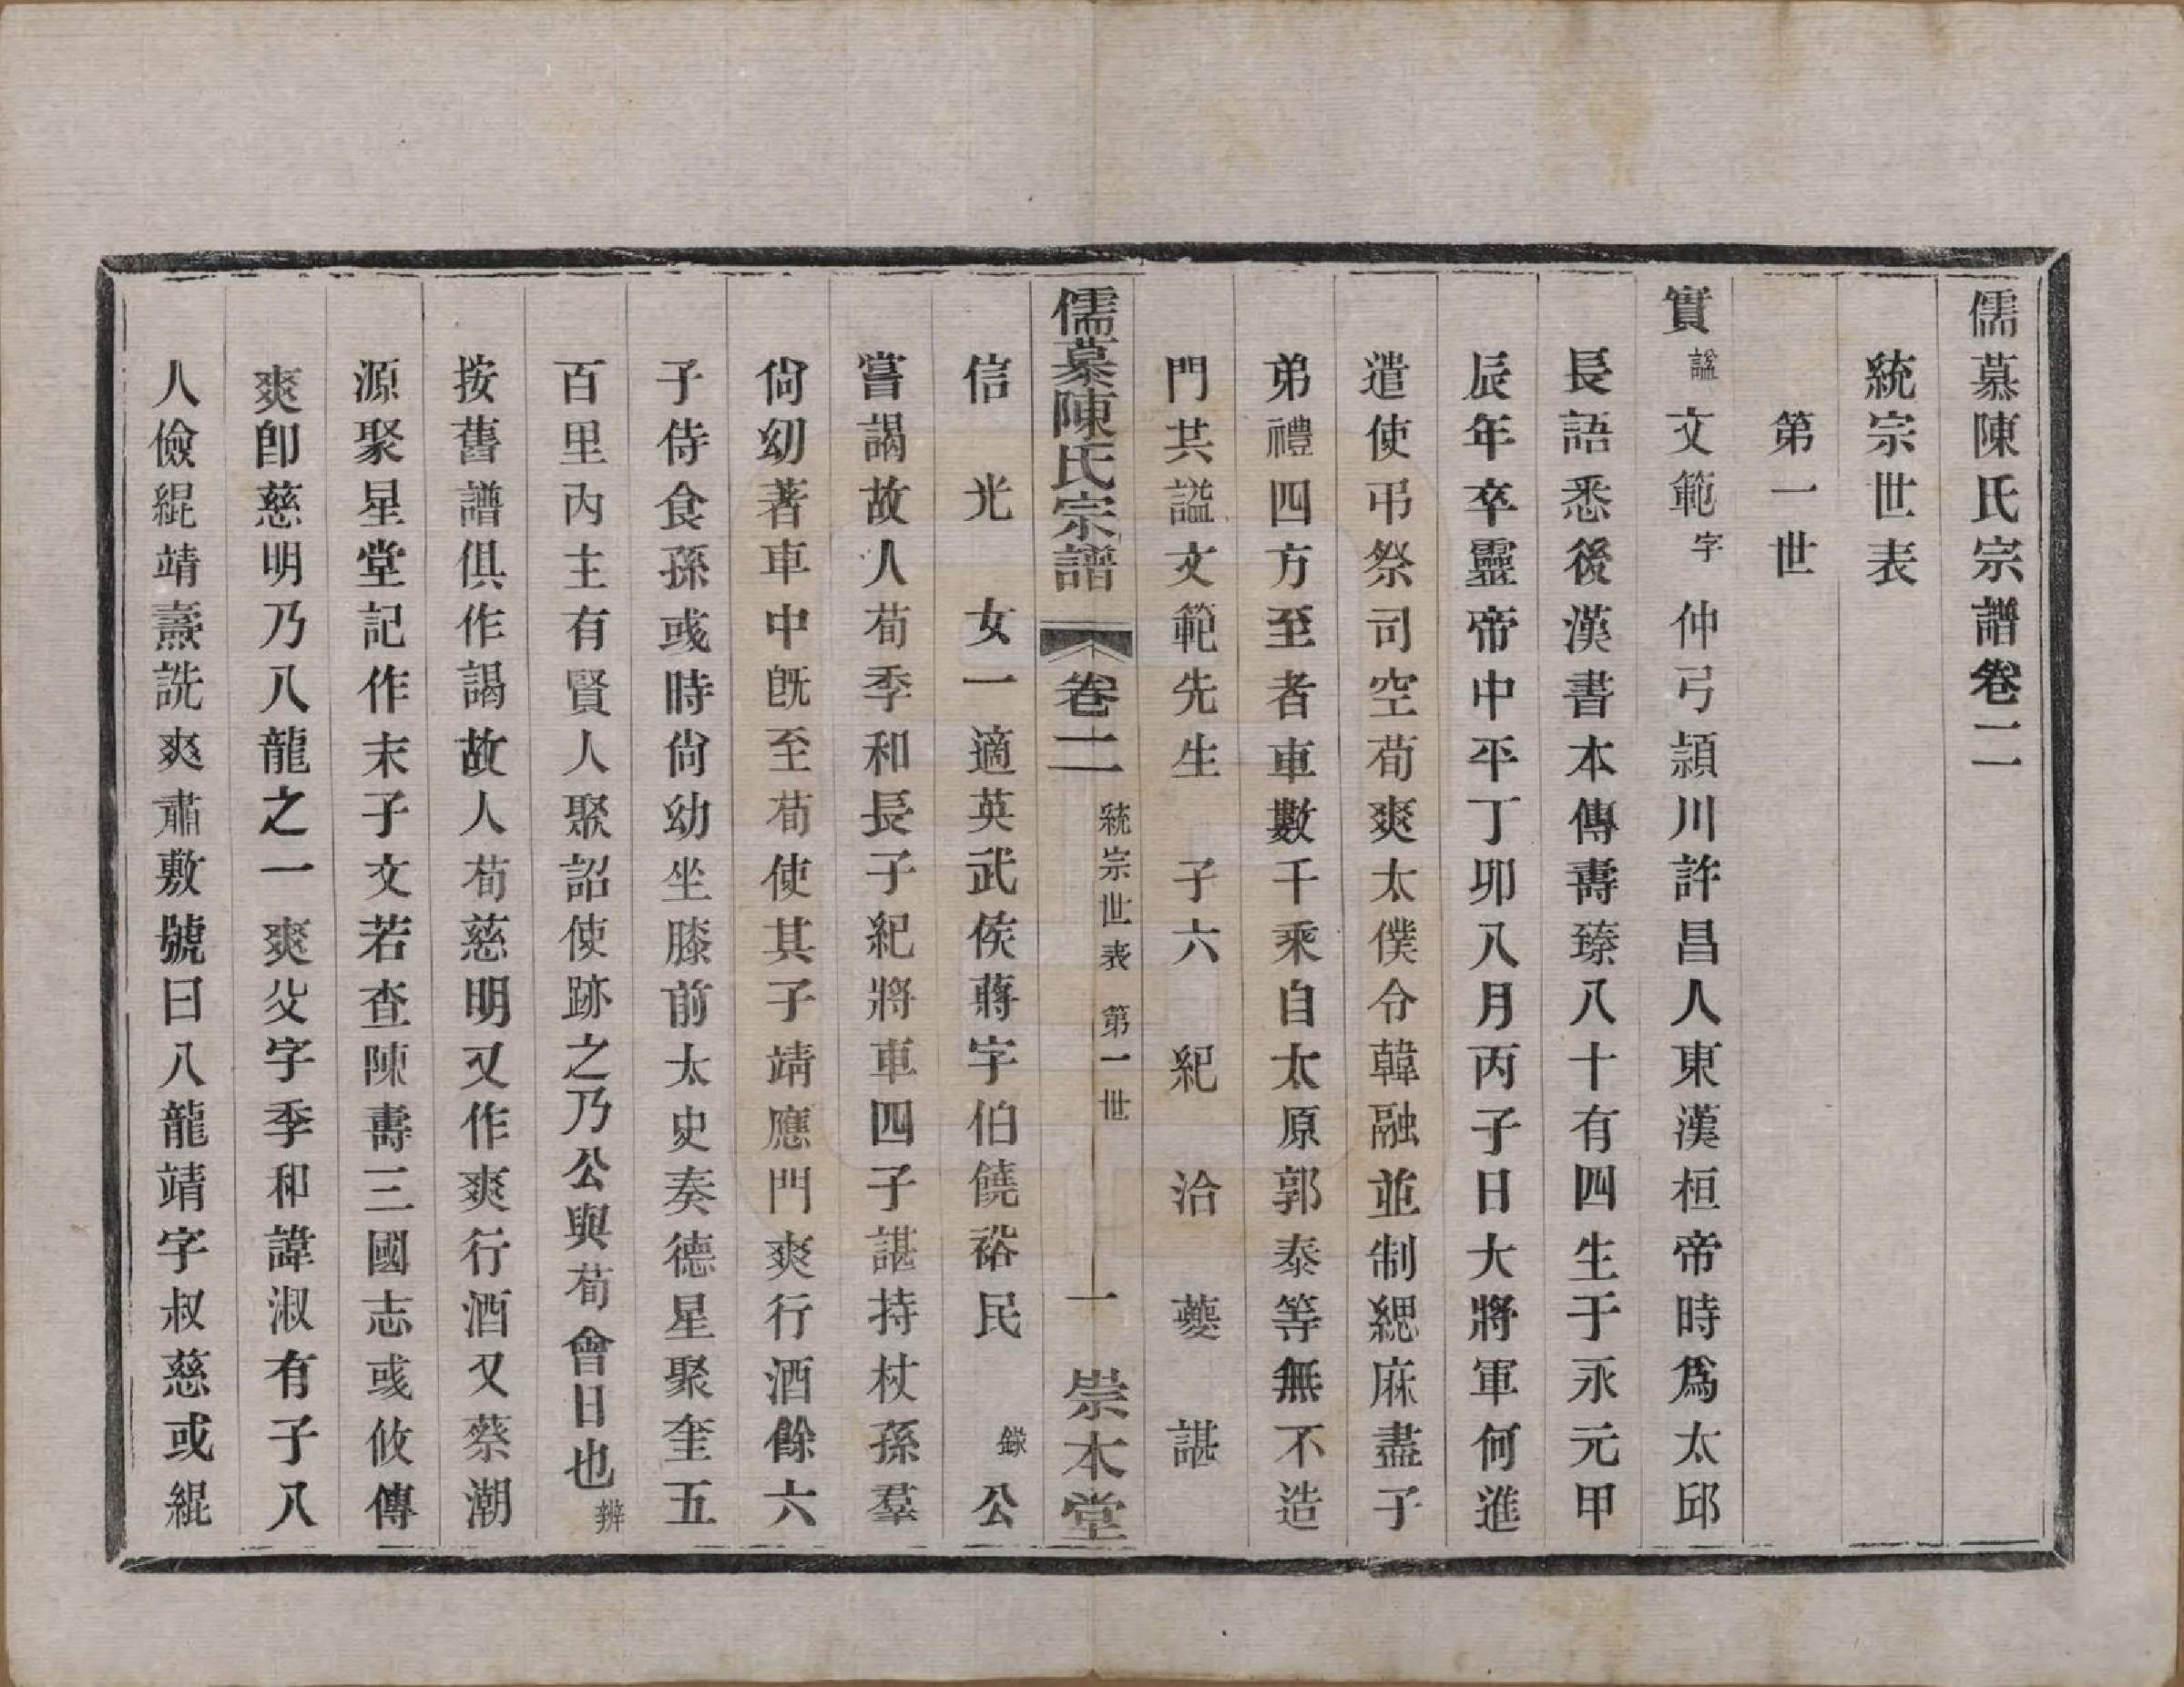 儒慕陳氏宗譜卷二
統宗世表
第一世
實諡文範字仲弓潁川許昌人東漢桓帝時爲太邱
長語悉後漢書本傳壽臻八十有四生于永元甲
辰年卒靈帝中平丁卯八月丙子日大將軍何進
遣使弔祭司空荀爽太僕令韓融並制緦麻盡子
弟禮四方至者車數千乘自太原郭泰等無不造
門共謚文範先生 子六 紀 洽 夔 諶
儒慕陳氏宗譜 卷二 統宗世表 第一世 一 崇本堂
信 光 女一適英武侯蔣字伯饒裕民 錄公
嘗謁故人荀季和長子紀將車四子諶持杖孫羣
尙幼著車中旣至荀使其子靖應門爽行酒餘六
子侍食孫彧時尙幼坐膝前太史奏德星聚奎五
百里內主有賢人聚詔使跡之乃公與荀會日也 辨
按舊譜俱作謁故人荀慈明又作爽行酒又蔡潮
源聚星堂記作末子文若查陳壽三國志彧攸傳
爽卽慈明乃八龍之一爽父字季和諱淑有子八
人儉緄靖燾詵爽肅敷號曰八龍靖字叔慈或緄